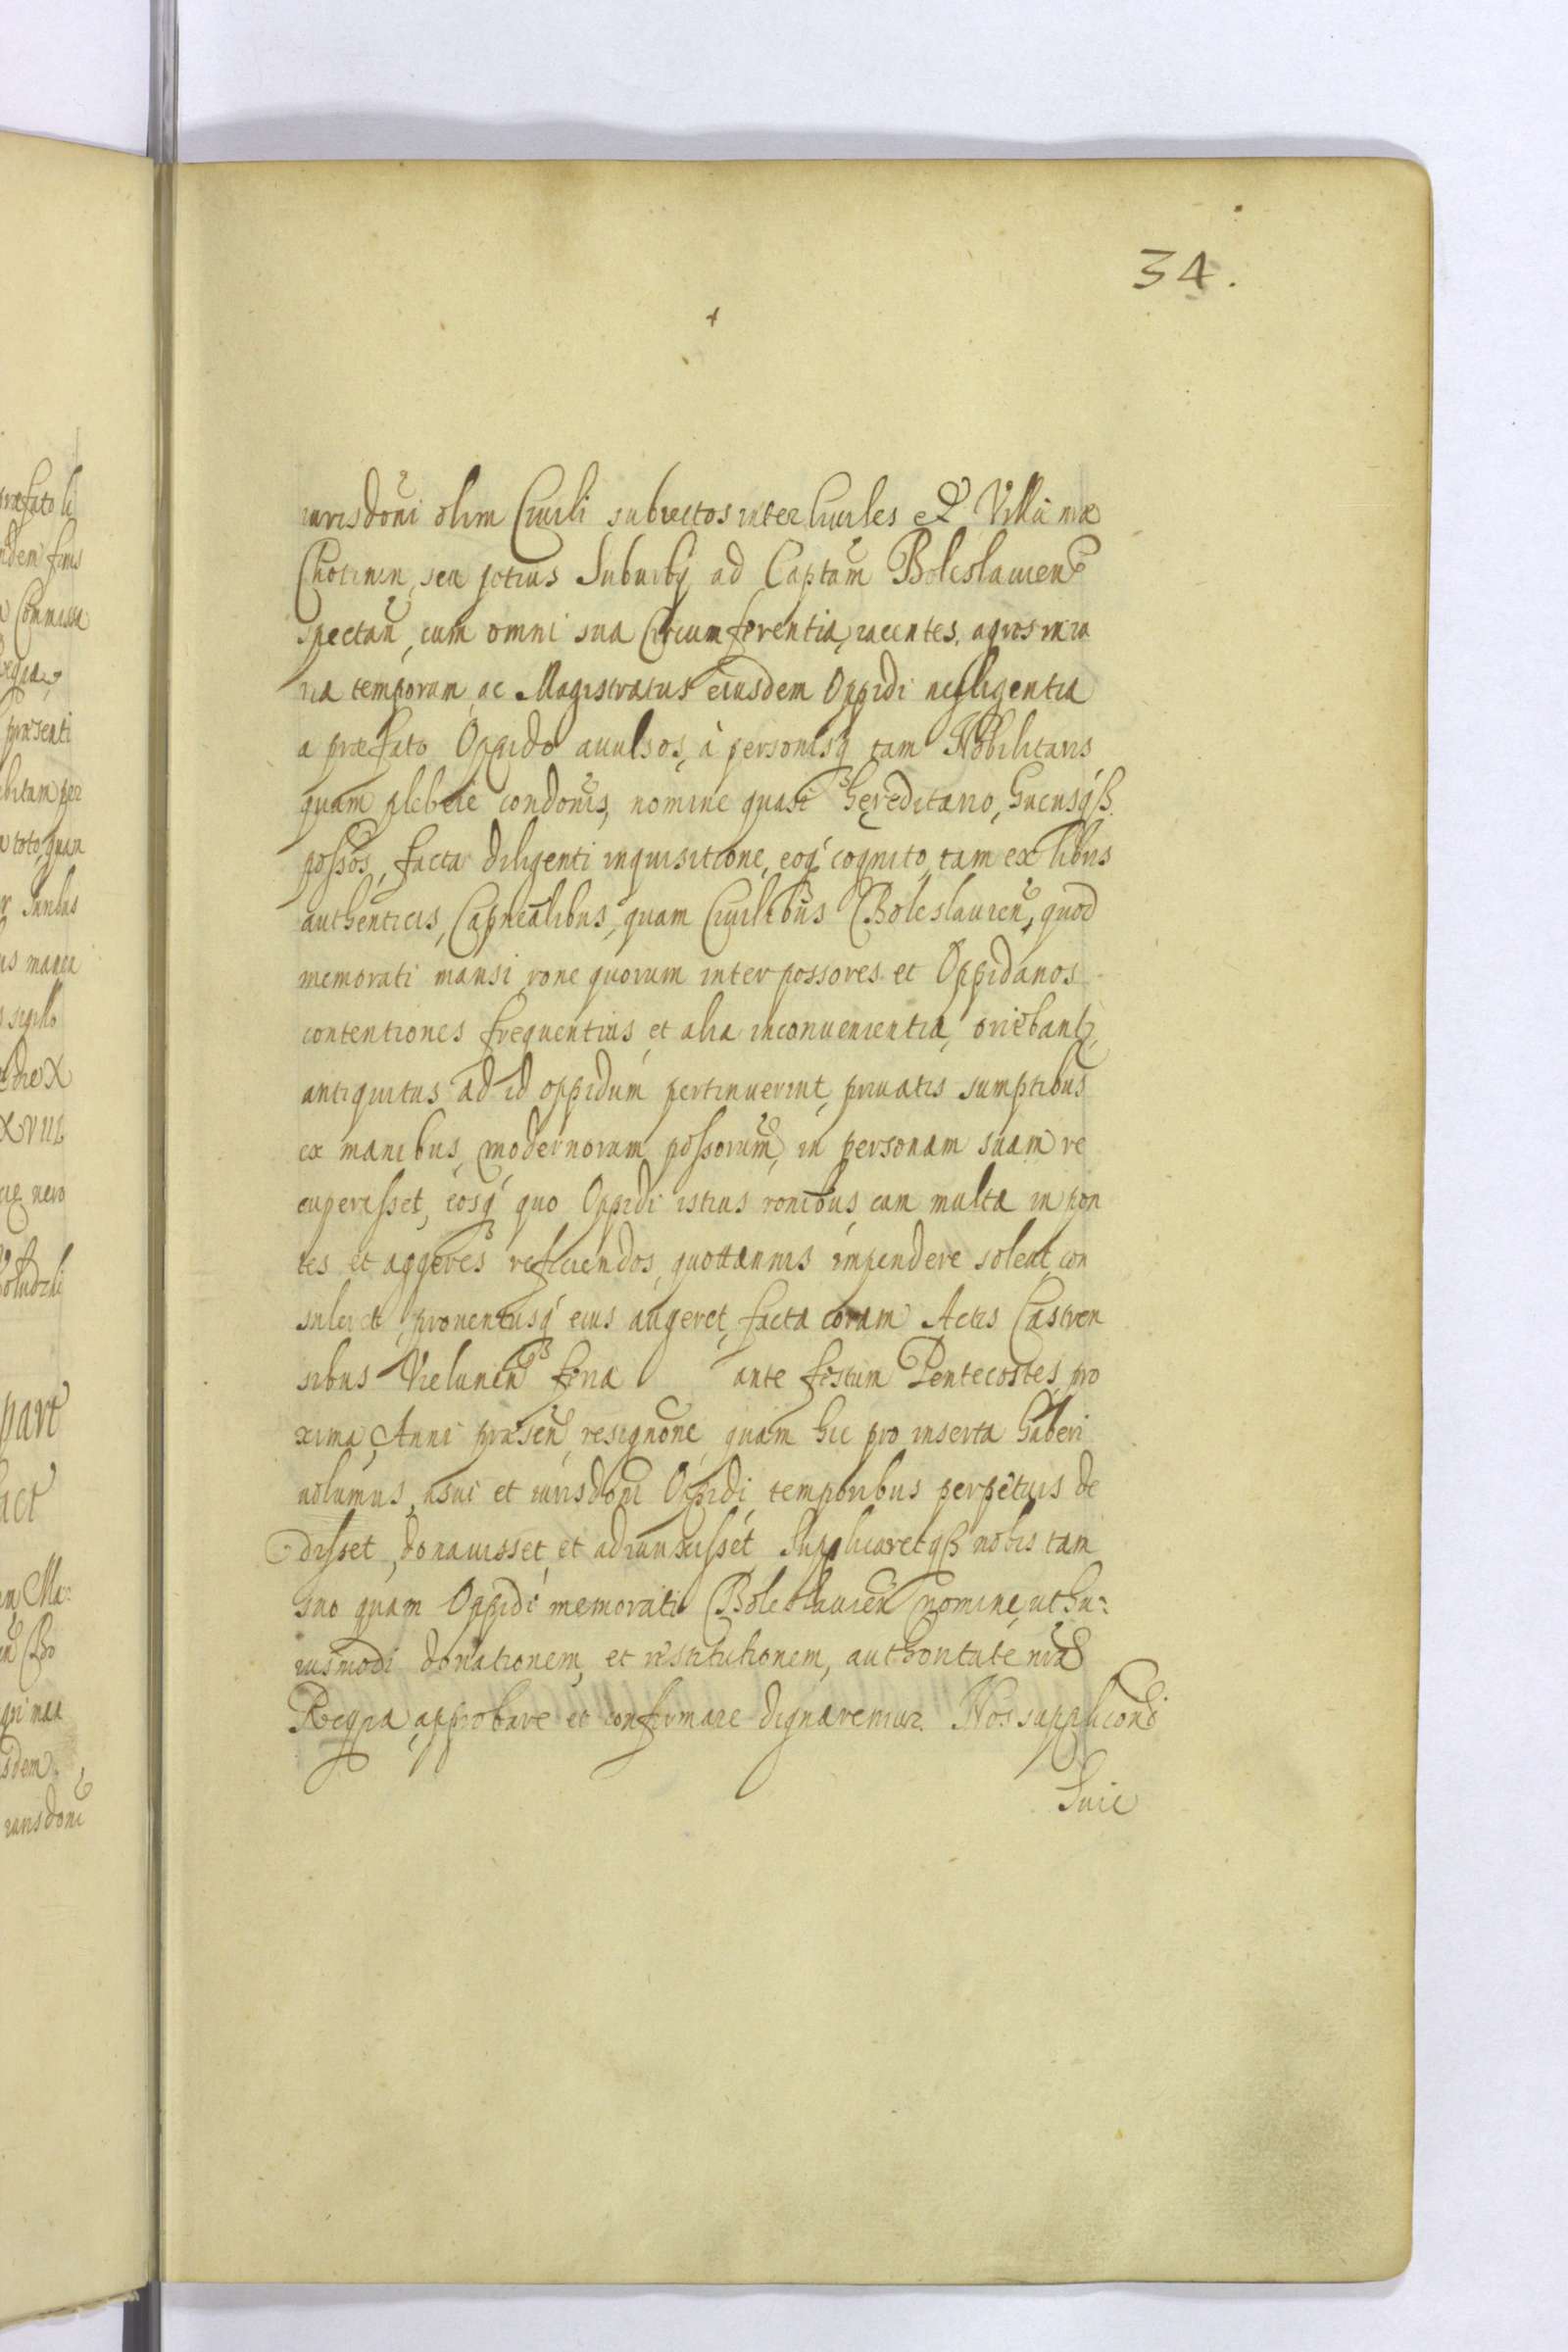 34.
iurisdoni olim Ciuili subiectos inter Ciuiles et Villã nrã
Chotinin, seu potius Suburbij ad Captam Boleslauien
spectan, cum omni sua Circumferentia, iacentes, agros iniu
ria temporum, ac Magistratus eiusdem Oppidi negligentia
a præfato Oppido auulsos, à personisq́ tam Nobilitaris
quam plebeie condonis, nomine quasi hęreditario, hucusqß
possos, facta diligenti inquisitione, eoq́ cognito, tam ex libris
authenticis, Capnealibus, quam Ciuilibus Boleslauien, quod
memorati mansi, rone quorum inter possores et Oppidanos
contentiones frequentius, et alia inconuenientia, oriebant,
antiquitus ad id oppidum pertinuerint, priuatis sumptibus
ex manibus, modernorum possorum, in personam suam re
cuperasset, eosq́ quo Oppidi istius ronibus, cum multa in pon
tes et aggeres reficiendos, quottannis impendere soleat, con
suleret, prouentusq́ eius augeret, facta coram Actis Castren
sibus Vielunen feria ante festum Pentecostes, pro
xima, Anni præsen, resignone, quam hic pro inserta haberi
uolumus, usui et iurisdoni Oppidi, temporibus perpetuis de
disset, donauisset, et adiunxisset Supplicaretqß nobis tam
suo quam Oppidi memorati Boleslauien nomine, ut hu:
iusmodi donationem, et restitutionem, authoritate nrã
Regia, approbare et confirmare dignaremur. Nos supplicãoni
Suic